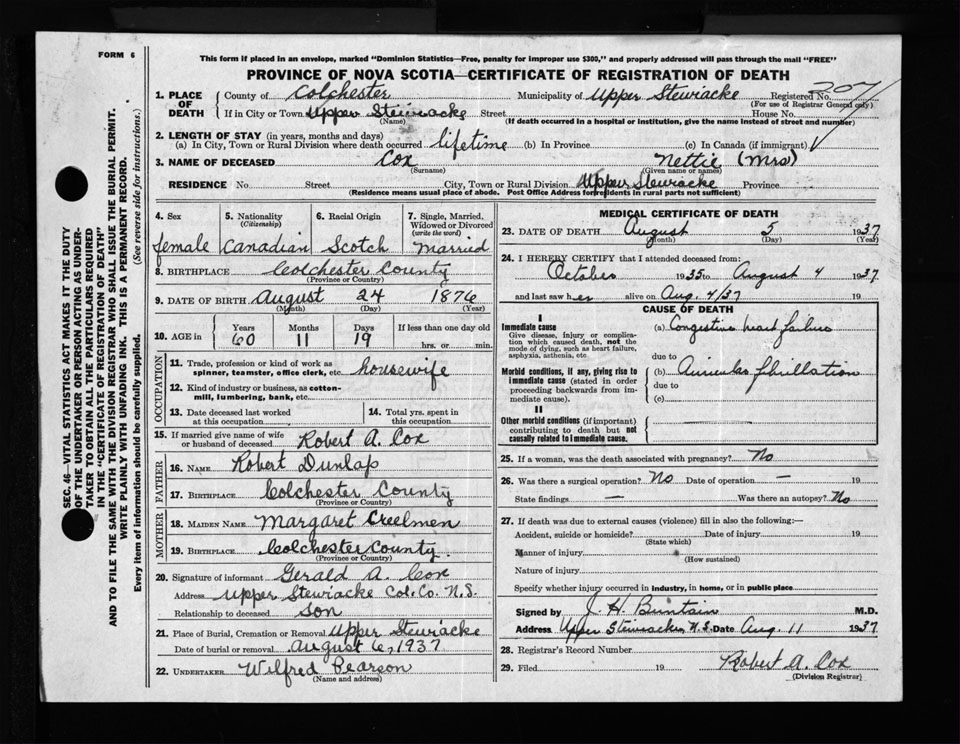 FORM 6
This form if placed in an envelope, marked "Dominion Statistics—Free, penalty for improper use $300," and properly addressed will pass through the mail "FREE"
PROVINCE OF NOVA SCOTIA—CERTIFICATE OF REGISTRATION OF DEATH
SEC. 46—VITAL STATISTICS ACT MAKES IT THE DUTY
OF THE UNDERTAKER OR PERSON ACTING AS UNDER-
TAKER TO OBTAIN ALL THE PARTICULARS REQUIRED
IN THE "CERTIFICATE OF REGISTRATION OF DEATH"
AND TO FILE THE SAME WITH THE DIVISION REGISTRAR WHO SHALL ISSUE THE BURIAL PERMIT.
WRITE PLAINLY WITH UNFADING INK. THIS IS A PERMANENT RECORD.
Every item of information should be carefully supplied. (See reverse side for instructions.)
1. PLACE OF DEATH
County of Colchester Municipality of Upper Stewiacke Registered No. 207
(For use of Registrar General only)
If in City or Town Upper Stewiacke Street House No.
(Name) (If death occurred in a hospital or institution, give the name instead of street and number)
2. LENGTH OF STAY (in years, months and days)
(a) In City, Town or Rural Division where death occurred lifetime (b) In Province (c) In Canada (if immigrant)
3. NAME OF DECEASED Cox Nettie (Mrs)
(Surname) (Given name or names)
RESIDENCE No. Street City, Town or Rural Division Upper Stewiacke Province
(Residence means usual place of abode. Post Office Address for residents in rural parts not sufficient)
4. Sex female
5. Nationality (Citizenship) Canadian
6. Racial Origin Scotch
7. Single, Married, Widowed or Divorced (write the word) Married
8. BIRTHPLACE Colchester County
(Province or Country)
9. DATE OF BIRTH August 24 1876
(Month) (Day) (Year)
10. AGE in Years 60 Months 11 Days 19 If less than one day old hrs. or min.
OCCUPATION
11. Trade, profession or kind of work as spinner, teamster, office clerk, etc. housewife
12. Kind of industry or business, as cotton-mill, lumbering, bank, etc.
13. Date deceased last worked at this occupation
14. Total yrs. spent in this occupation
15. If married give name of wife or husband of deceased Robert A. Cox
FATHER
16. NAME Robert Dunlap
17. BIRTHPLACE Colchester County
(Province or Country)
MOTHER
18. MAIDEN NAME Margaret Creelmen
19. BIRTHPLACE Colchester County.
(Province or Country)
20. Signature of informant Gerald A. Cox
Address Upper Stewiacke Col. Co. N.S.
Relationship to deceased son
21. Place of Burial, Cremation or Removal Upper Stewiacke
Date of burial or removal August 6, 1937
22. UNDERTAKER Wilfred Pearson
(Name and address)
MEDICAL CERTIFICATE OF DEATH
23. DATE OF DEATH August 5 1937
(Month) (Day) (Year)
24. I HEREBY CERTIFY that I attended deceased from:
October 1935 to August 4 1937
and last saw her alive on Aug. 4/37 19
CAUSE OF DEATH
I
Immediate cause
Give disease, injury or complication which caused death, not the mode of dying, such as heart failure, asphyxia, asthenia, etc
(a) Congestive heart failure
due to
Morbid conditions, if any, giving rise to immediate cause (stated in order proceeding backwards from immediate cause).
(b) Auricular fibrillation
due to
(c)
II
Other morbid conditions (if important) contributing to death but not causally related to immediate cause.
25. If a woman, was the death associated with pregnancy? No
26. Was there a surgical operation? No Date of operation — 19
State findings — Was there an autopsy? No
27. If death was due to external causes (violence) fill in also the following:—
Accident, suicide or homicide? Date of injury 19
(State which)
Manner of injury
(How sustained)
Nature of injury
Specify whether injury occurred in industry, in home, or in public place
Signed by J. H. Buntain M.D.
Address Upper Stewiacke, N.S. Date Aug. 11 1937
28. Registrar's Record Number
29. Filed 19 Robert A. Cox
(Division Registrar)